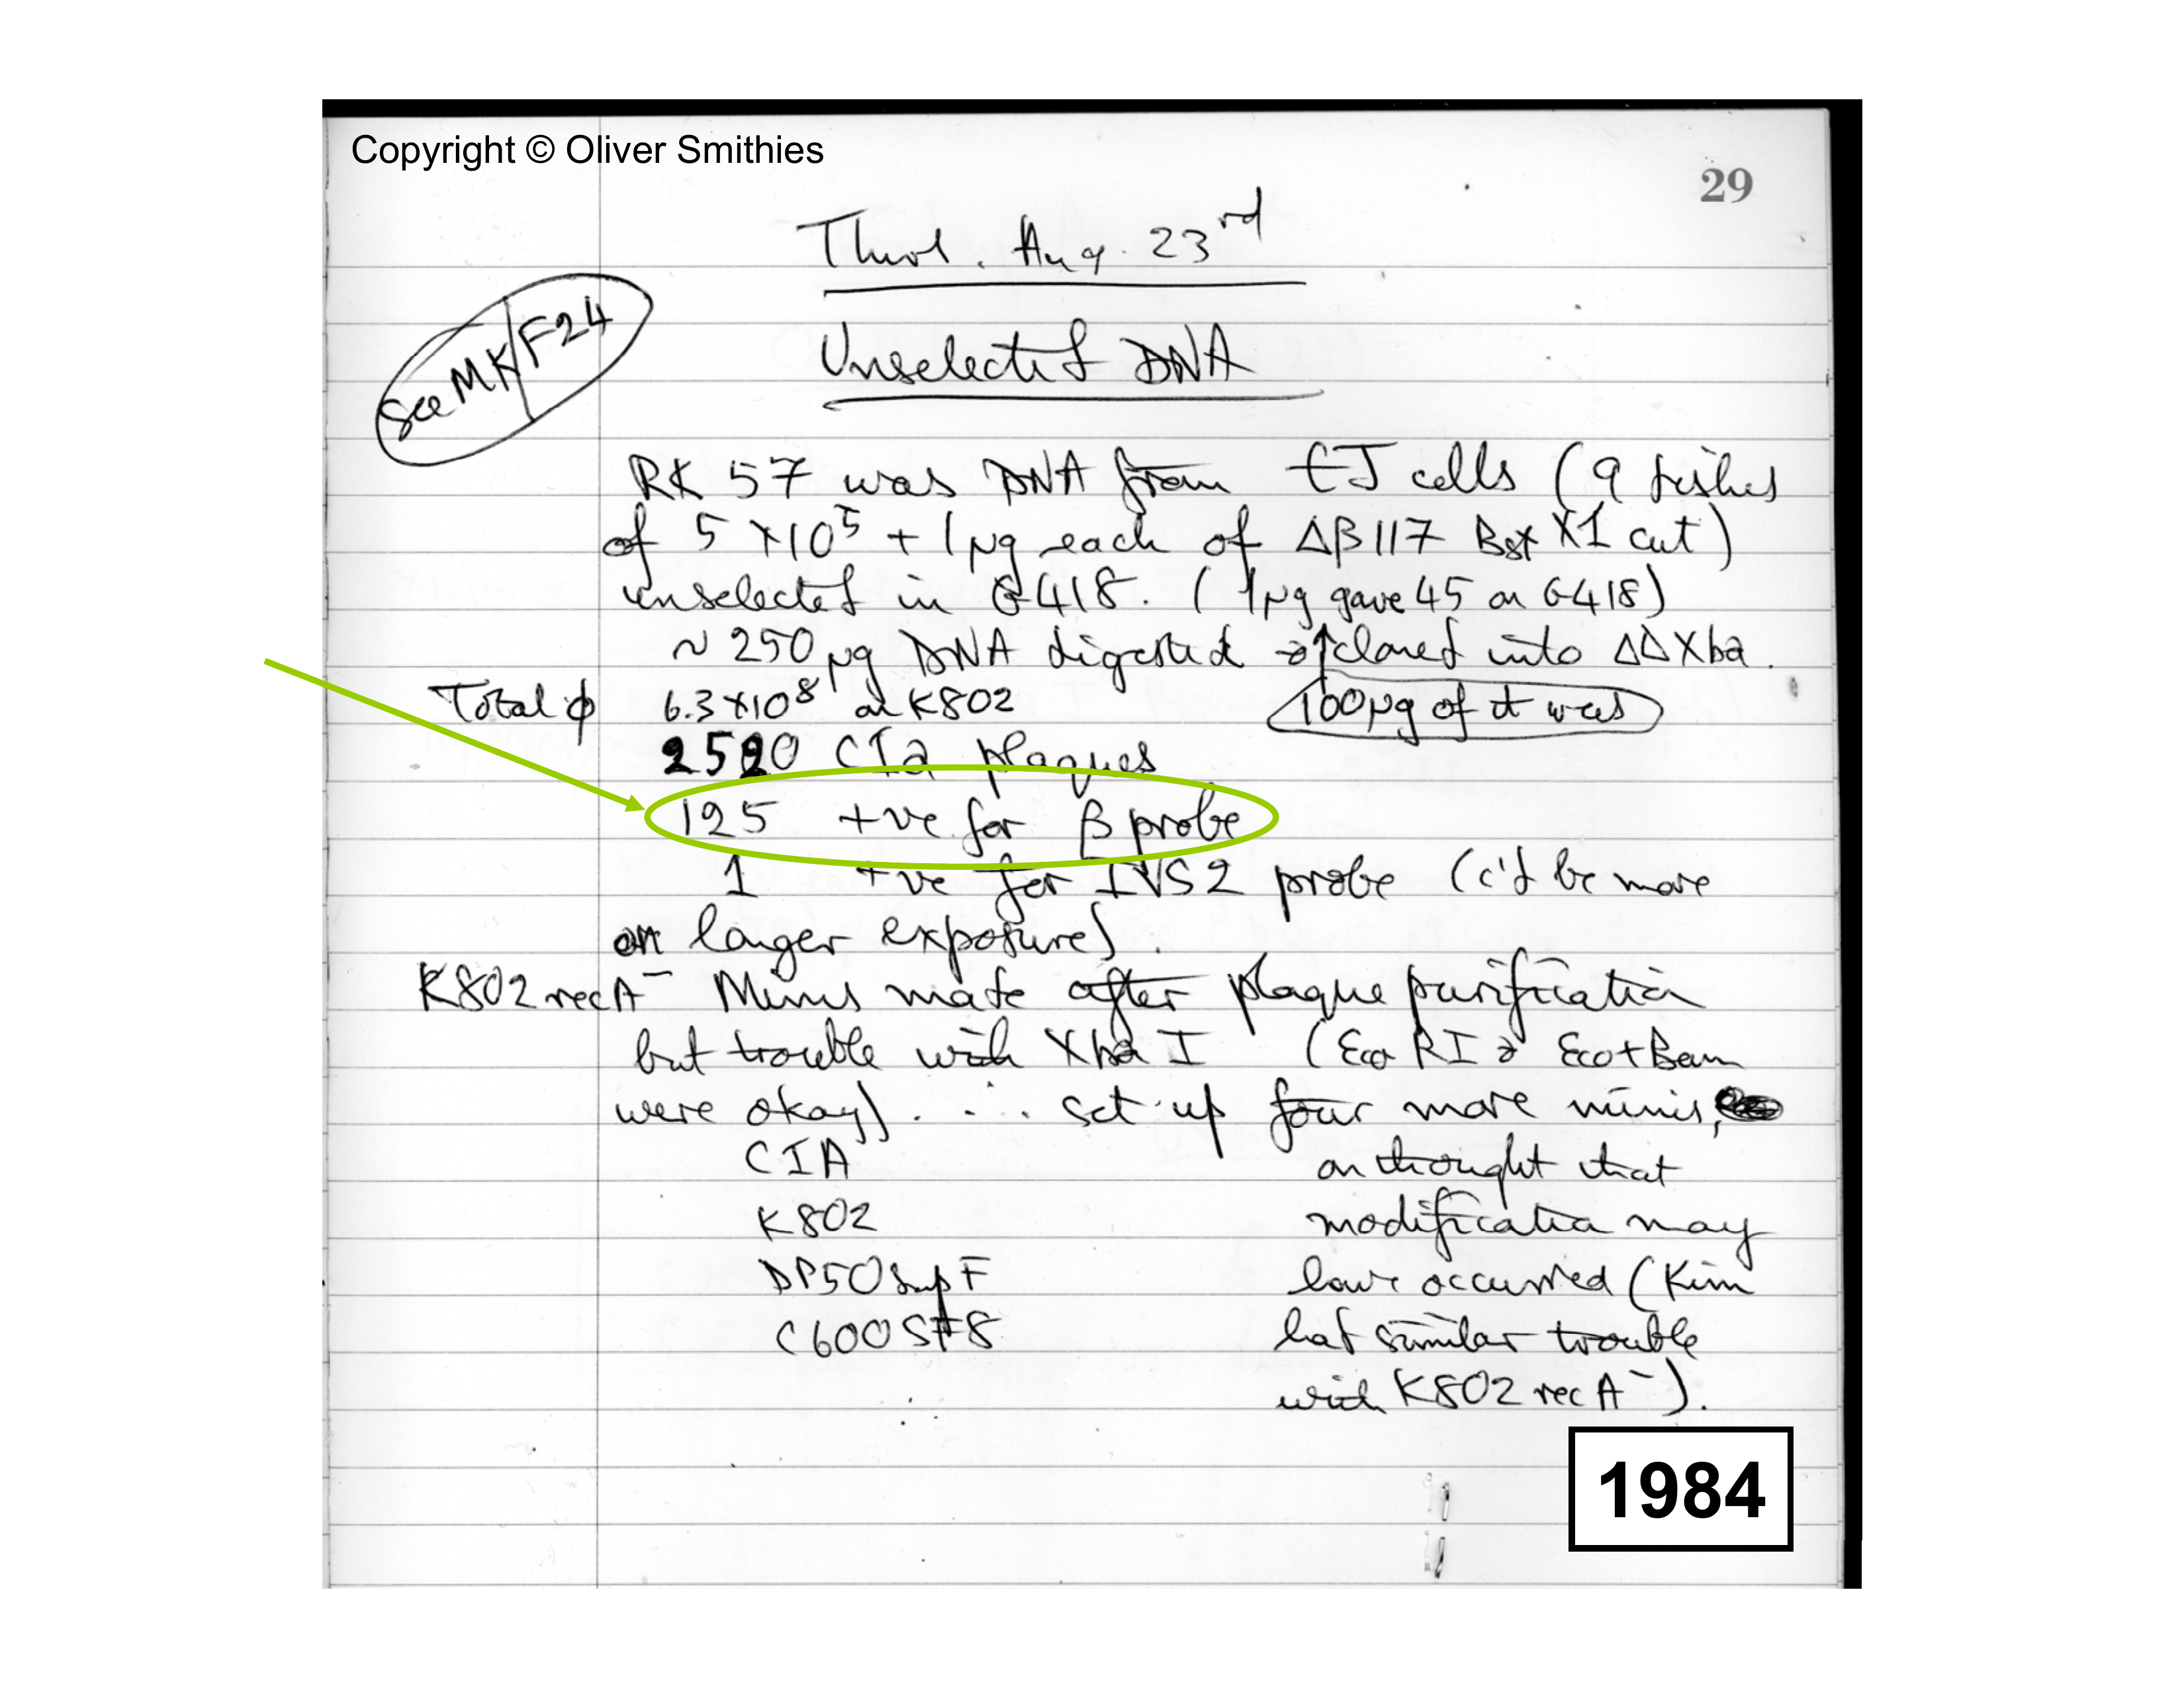 Copyright © Oliver Smithies
29
Thurs. Aug. 23rd
see MK/F24
Unselected DNA
RK 57 was DNA from EJ cells (9 dishes
of 5 X10⁵ + 1µg each of Δβ117 BstX1 cut)
unselected in G418. (1µg gave 45 on G418)
~ 250 µg DNA digested & cloned into ΔΔXba.
100µg of it was
Total ϕ 6.3 X10⁸ on K802
2520 CIa plaques
125 +ve for β probe
1 +ve for IVS2 probe (c'd be more
on longer exposure).
K802 recA⁻ Minis made after plaque purification
but trouble with Xba I (Eco RI & Eco+Bam
were okay). ∴ set up four more minis,
CIA on thought that
K802 modification may
DP50 supF have occurred (Kim
C600 SF8 had similar trouble
with K802 rec A⁻).
1984